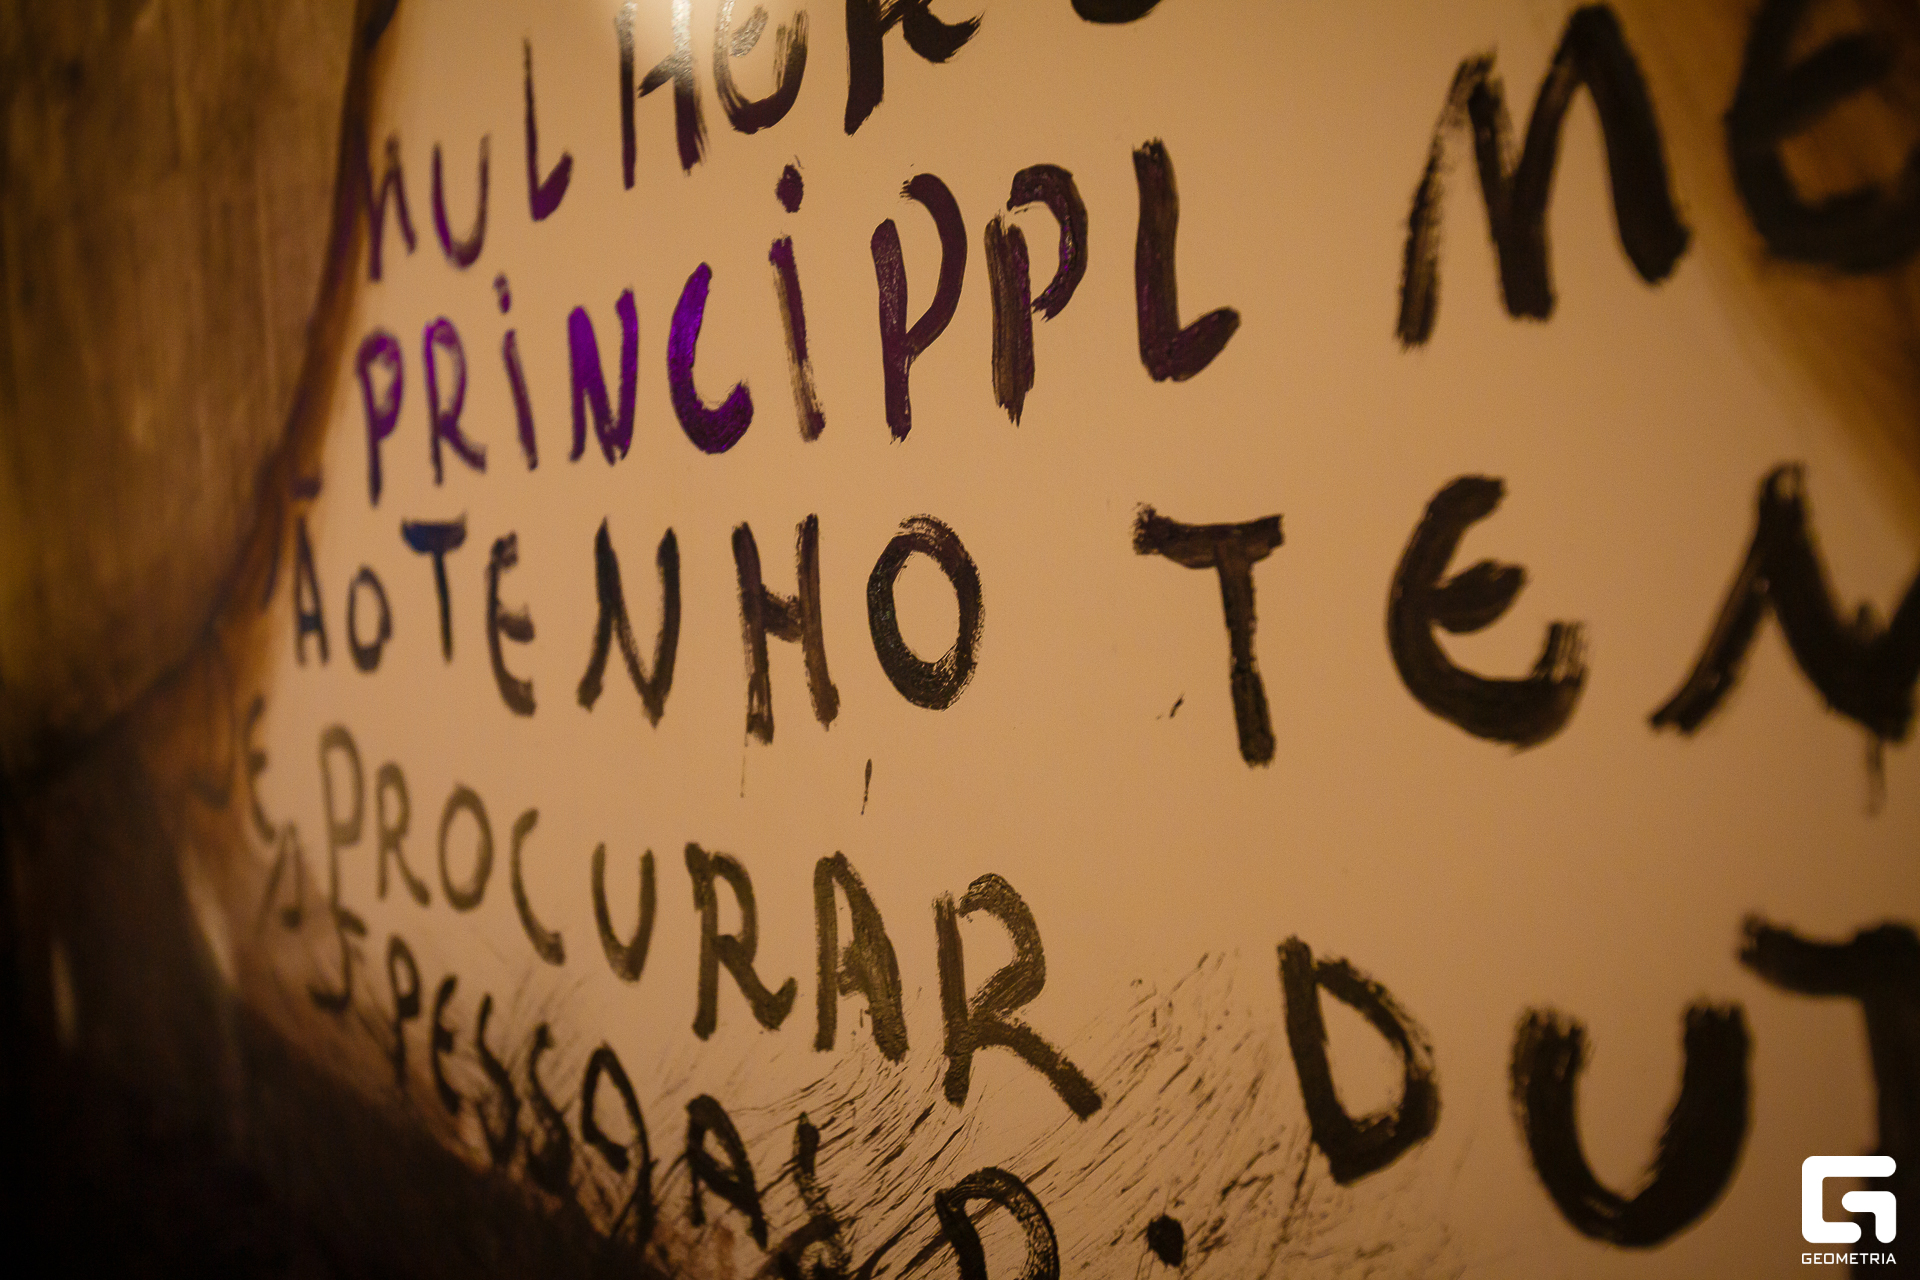 MULHER
PRINCIPPL ME
ÃO TENHO TEM
E PROCURAR DUT
PESSOAL D.
GEOMETRIA